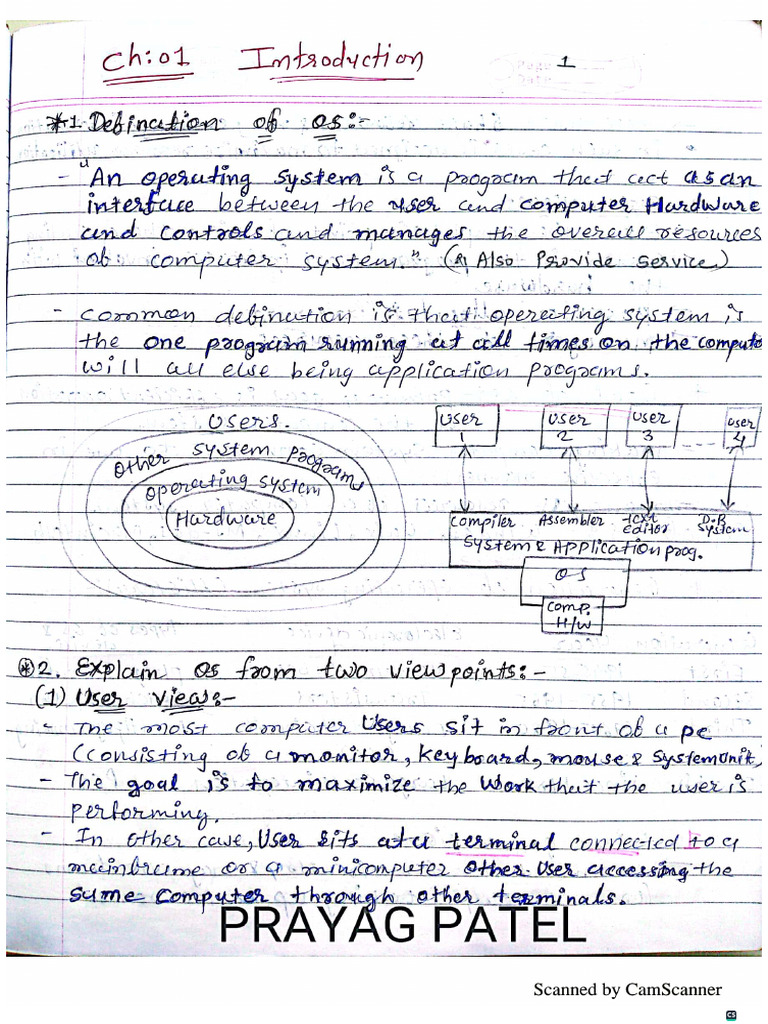 Ch:01 Introduction 1
*1. Defination of OS:-
- "An operating system is a program that act as an
interface between the user and computer Hardware
and controls and manages the overall resources
of computer system." (& Also Provide service)
- Common defination is that operating system is
the one program running at all times on the computer
will all else being application programs.
Users.
Other system programs
Operating system
Hardware
User 1
User 2
User 3
User 4
Compiler Assembler Text Editor D.B System
System & Application prog.
OS
Comp. H/W
*2. Explain OS from two view points:-
(1) User view:-
- The most computer Users sit in front of a pc
(consisting of a monitor, keyboard, mouse & System Unit)
- The goal is to maximize the work that the user is
performing.
- In other case, User sits at a terminal connected to a
mainframe or a minicomputer other User accessing the
same computer through other terminals.
PRAYAG PATEL
Scanned by CamScanner
CS